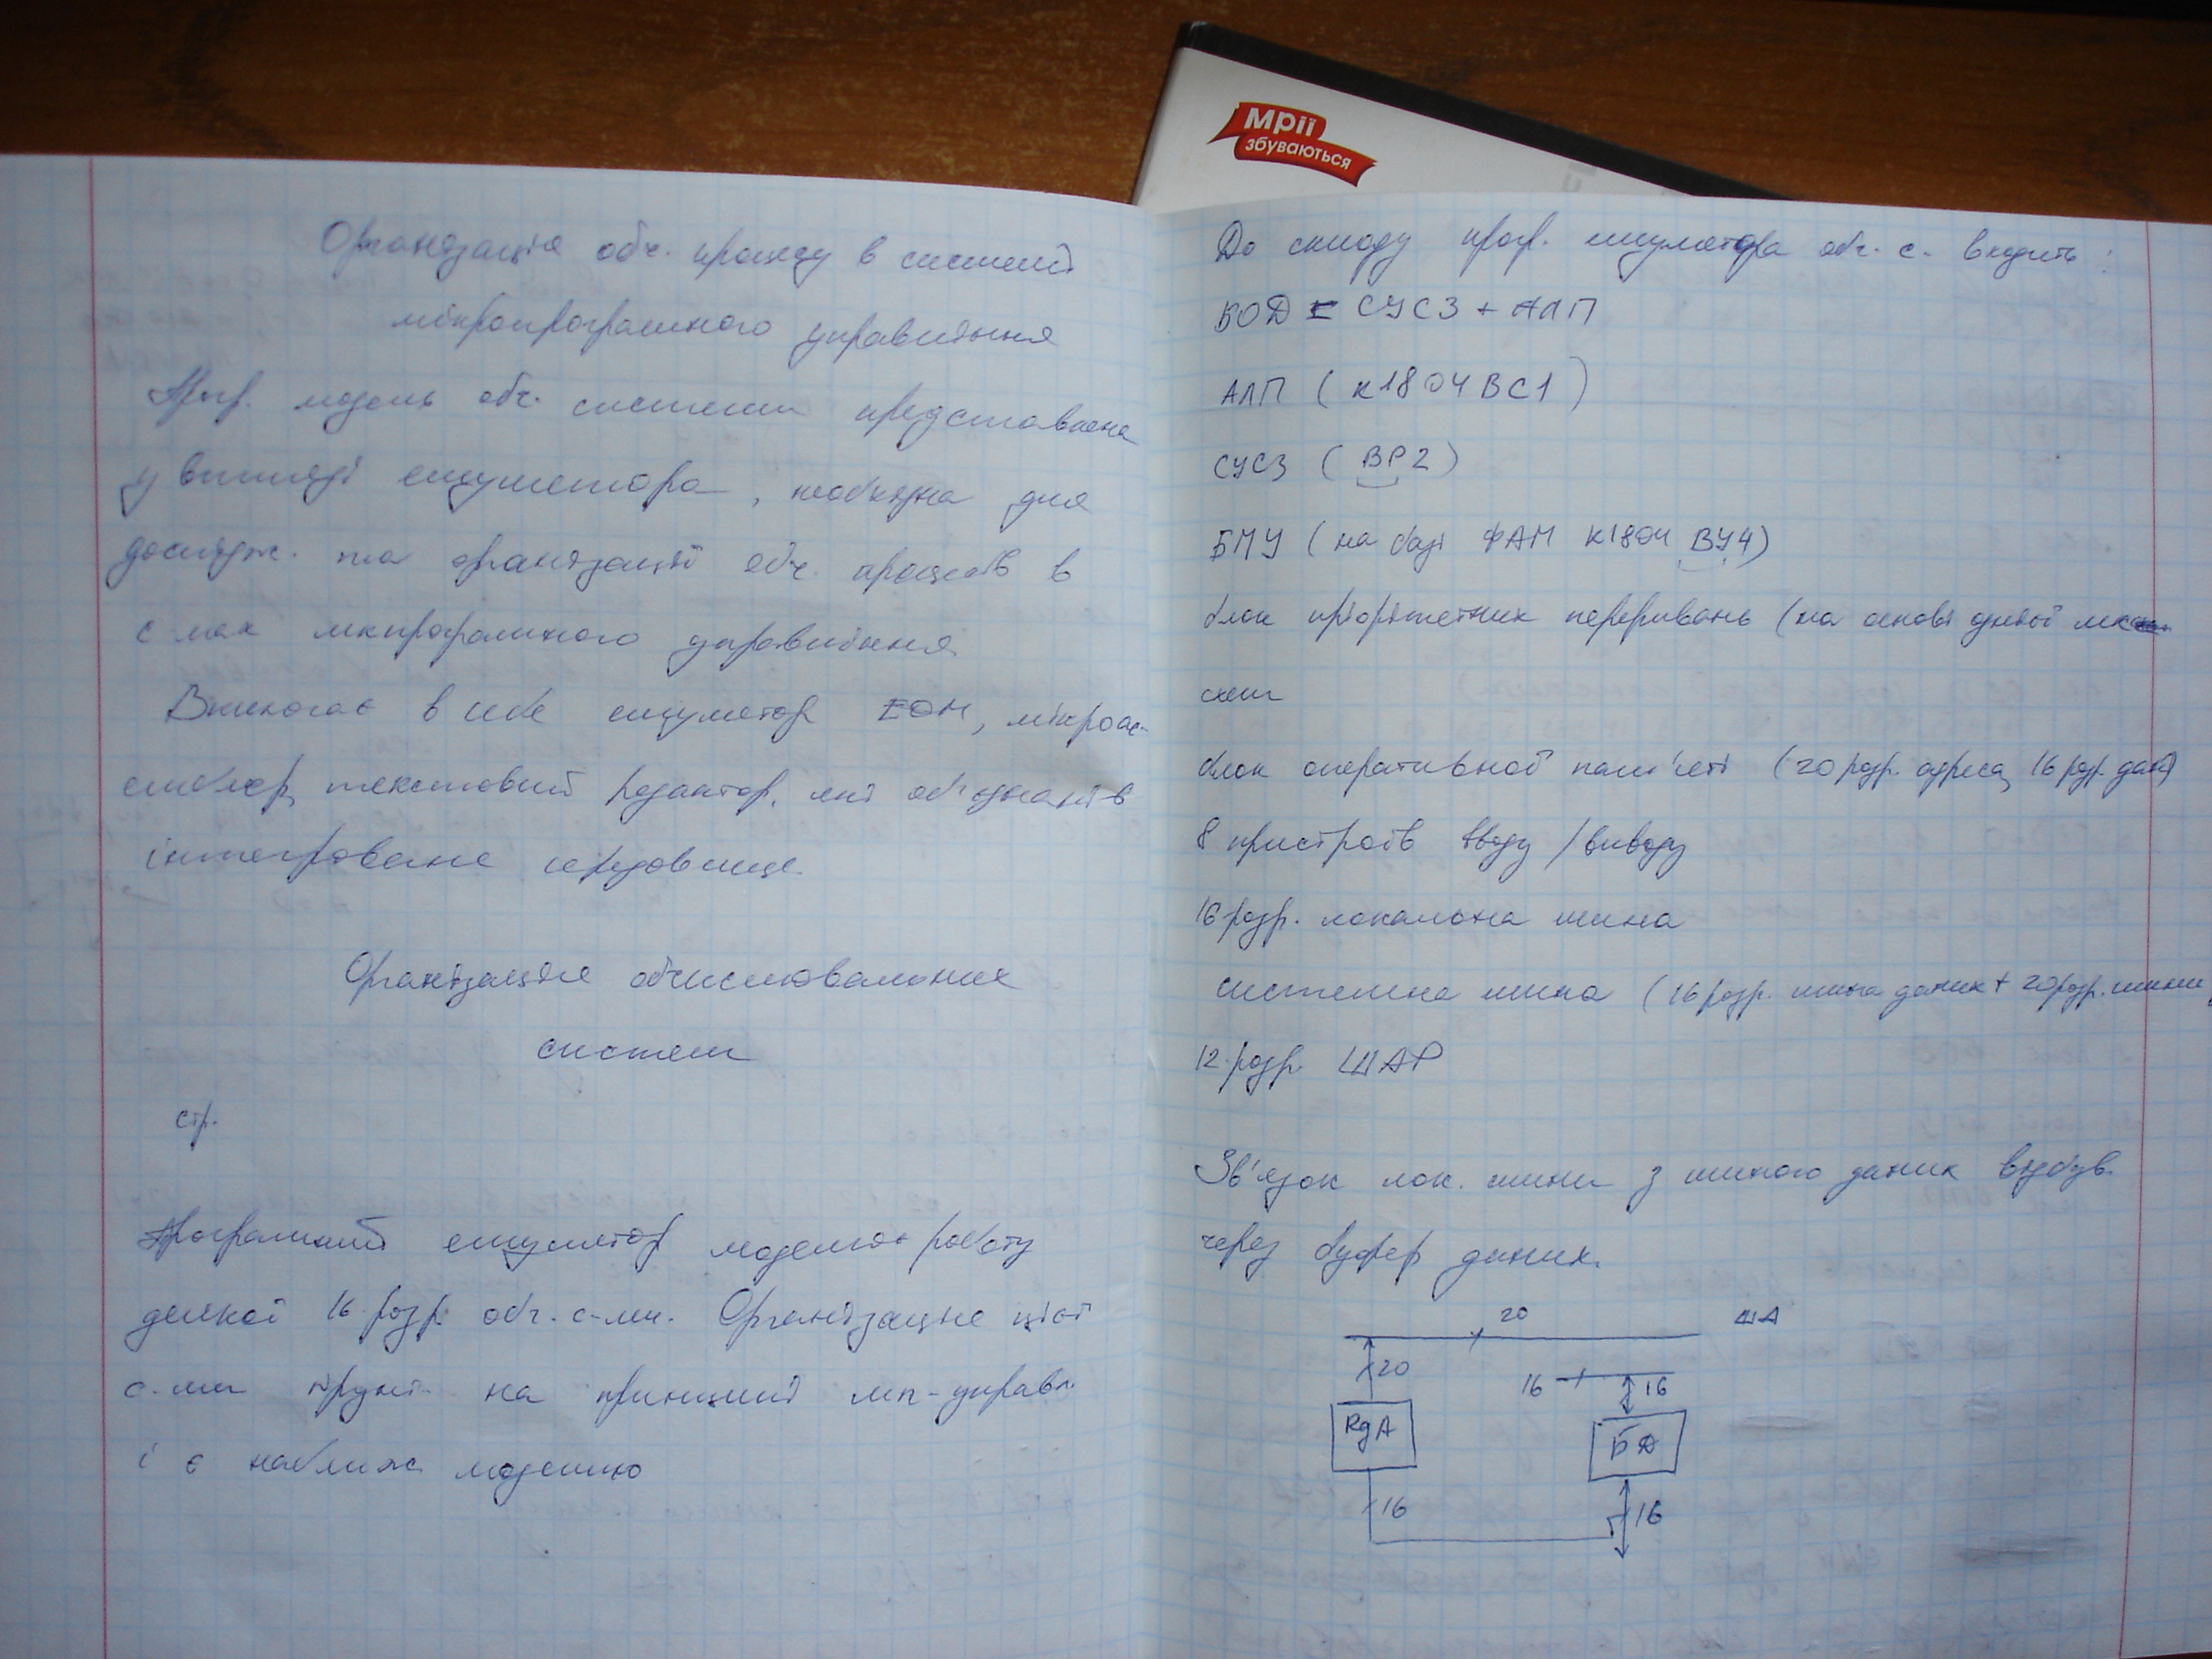 Мрії
збуваються
Організація обч. процесу в системі
мікропрограмного управління
Прогр. модель обч. системи представлена
у вигляді емулятора, необхідна для
дослідж. та організації обч. процесів в
с-мах мкпрограмного управління
Включає в себе емулятор ЕОМ, мікроас-
емблер, текстовий редактор, які об'єднані в
інтегроване середовище.
Організація обчислювальних
систем
стр.
Програмний емулятор моделює роботу
деякої 16 розр. обч. с-ми. Організація цієї
с-ми грунт. на принципі мп-управл.
і є наближ. моделлю
До складу прогр. емулятора обч. с. входить:
БОД = СУСЗ + АЛП
АЛП (К1804ВС1)
СУСЗ (ВР2)
БМУ (на базі ФАМ К1804 ВУ4)
блок пріорітетних переривань (на основі
схем
блок оперативної пам'яті (20 розр. адреса, 16 розр. дані)
8 пристроїв вводу / виводу
16 розр. локальна шина
системна шина (16 розр. шина даних + 20 розр. шини
12 розр. ШАР
Зв'язок лок. шини з шиною даних відбув.
через буфер даних.
20 ША
20
16 16
RgA
БД
16
16